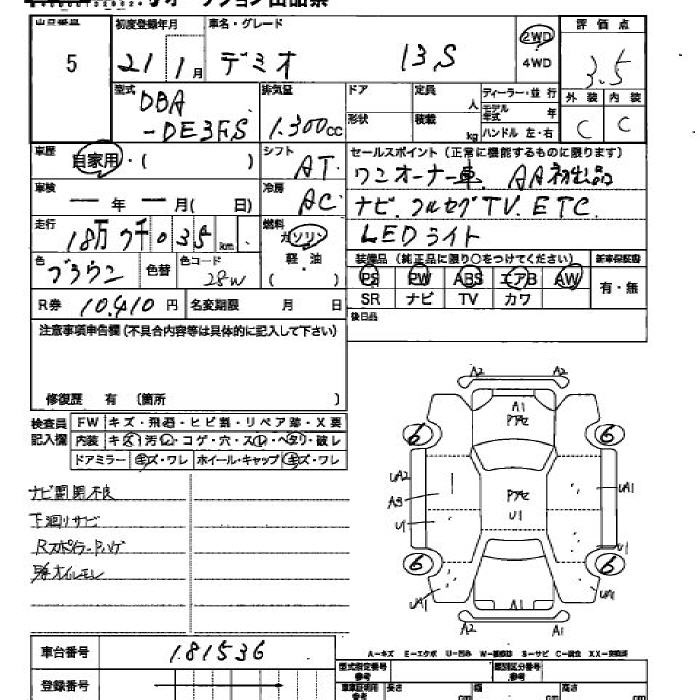 出品番号 初度登録年月 車名・グレード 評価点
5 21 1月 デミオ 13S 2WD 4WD 3.5
型式 DBA-DE3FS 排気量 1.300cc
ドア 定員 人 ディーラー・並行
形状 積載 kg モデル年式 年 ハンドル 左・右
外装 内装
C C
車歴 自家用・( ) シフト AT
セールスポイント (正常に機能するものに限ります)
ワンオーナー車 AA初出品
車検 ー年ー月( 日) 冷房 AC
ナビ.フルセグTV.ETC
走行 18万 9千035km 燃料 ガソリン 軽油 ( )
LEDライト
色 ブラウン 色替 色コード 28W
装備品 (純正品に限り○をつけてください) 新車保証書
PS PW ABS エアB AW 有・無
SR ナビ TV カワ
R券 10,410円 名変期限 月 日
後日品
注意事項申告欄 (不具合内容等は具体的に記入して下さい)
修復歴 有 (箇所 )
検査員記入欄 FW キズ・飛石・ヒビ割・リペア跡・X要
内装 キズ・汚レ・コゲ・穴・スレ・ヘタリ・破レ
ドアミラー キズ・ワレ ホイール・キャップ キズ・ワレ
ナビ周囲不良
下廻りサビ
RスポイラーPハゲ
オイルモレ
A2 A2
A1
Pアセ
6 6
UA2
A3
U1
Pアセ
U1
UA1
U1
6 6
UA1 A1 UA1
A2 A1
A-キズ E-エクボ U-凹み W-補修跡 S-サビ C-腐食 XX-交換済
車台番号 181536
登録番号
型式指定番号 参考 類別区分番号 参考
車庫証明用 参考 長さ cm 幅 cm 高さ cm